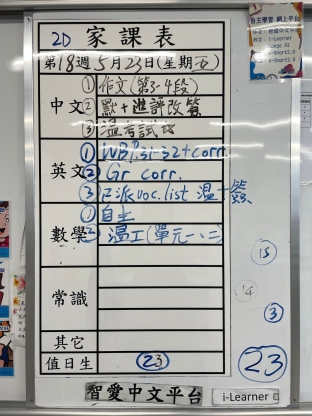 2D 家課表
第18週5月23日(星期五)
中文
①作文(第3-4段)
②默+進評改簽
③溫考試
英文
①WB P.31-32+corr.
②Gr corr.
③已派voc.list 溫+簽
數學
①自主
②溫工(單元一、二)
常識
其它
值日生 23
智愛中文平台
i-Learner
自主學習 網上平台
15
14
③
23